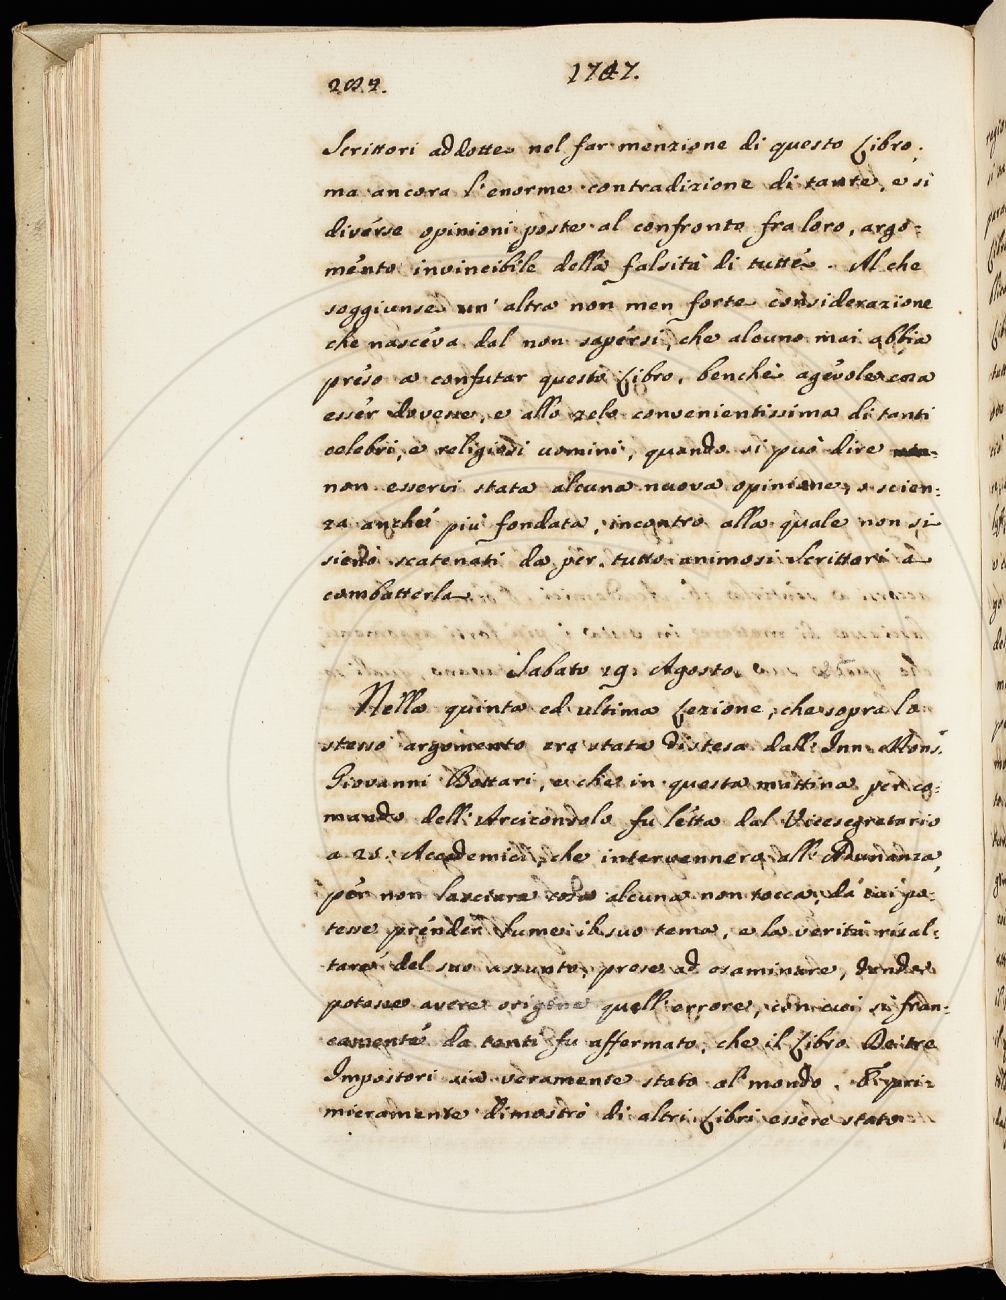 1747.
204.
Scrittori addotte nel far menzione di questo Libro;
ma ancora l'enorme contradizione di tante, e sì
diverse opinioni poste al confronto fra loro, argo=
mento invincibile della falsità di tutte. Al che
soggiunse un' altra non men forte considerazione
che nasceva dal non sapersi, che alcuno mai abbia
preso a confutar questo Libro, benchè agevole cosa
esser dovesse, e allo zelo convenientissima di tanti
celebri, e religiosi uomini, quando si può dire
non esservi stata alcuna nuova opinione, o scien=
za anche più fondata, incontro alla quale non si
sieno scatenati da per tutto animosi Scrittori a
combatterla.
Sabato 29. Agosto.
Nella quinta ed ultima Lezione, che sopra lo
stesso argomento era stata distesa dall' Inn. Mons.
Giovanni Bottari, e che in questa mattina per co=
mando dell' Arciconsolo fu letta dal Vicesegretario
a 25. Accademici, che intervennero all' Adunanza,
per non lasciare cosa alcuna non tocca, da cui po=
tesse prender lume il suo tema, e la verità risal=
tare del suo assunto, prese ad esaminare, donde
potesse avere origine quell' errore, con cui sì fran=
camente da tanti fu affermato, che il Libro De tre
Impostori sia veramente stato al mondo. E pri=
mieramente dimostrò di altri Libri essere stato